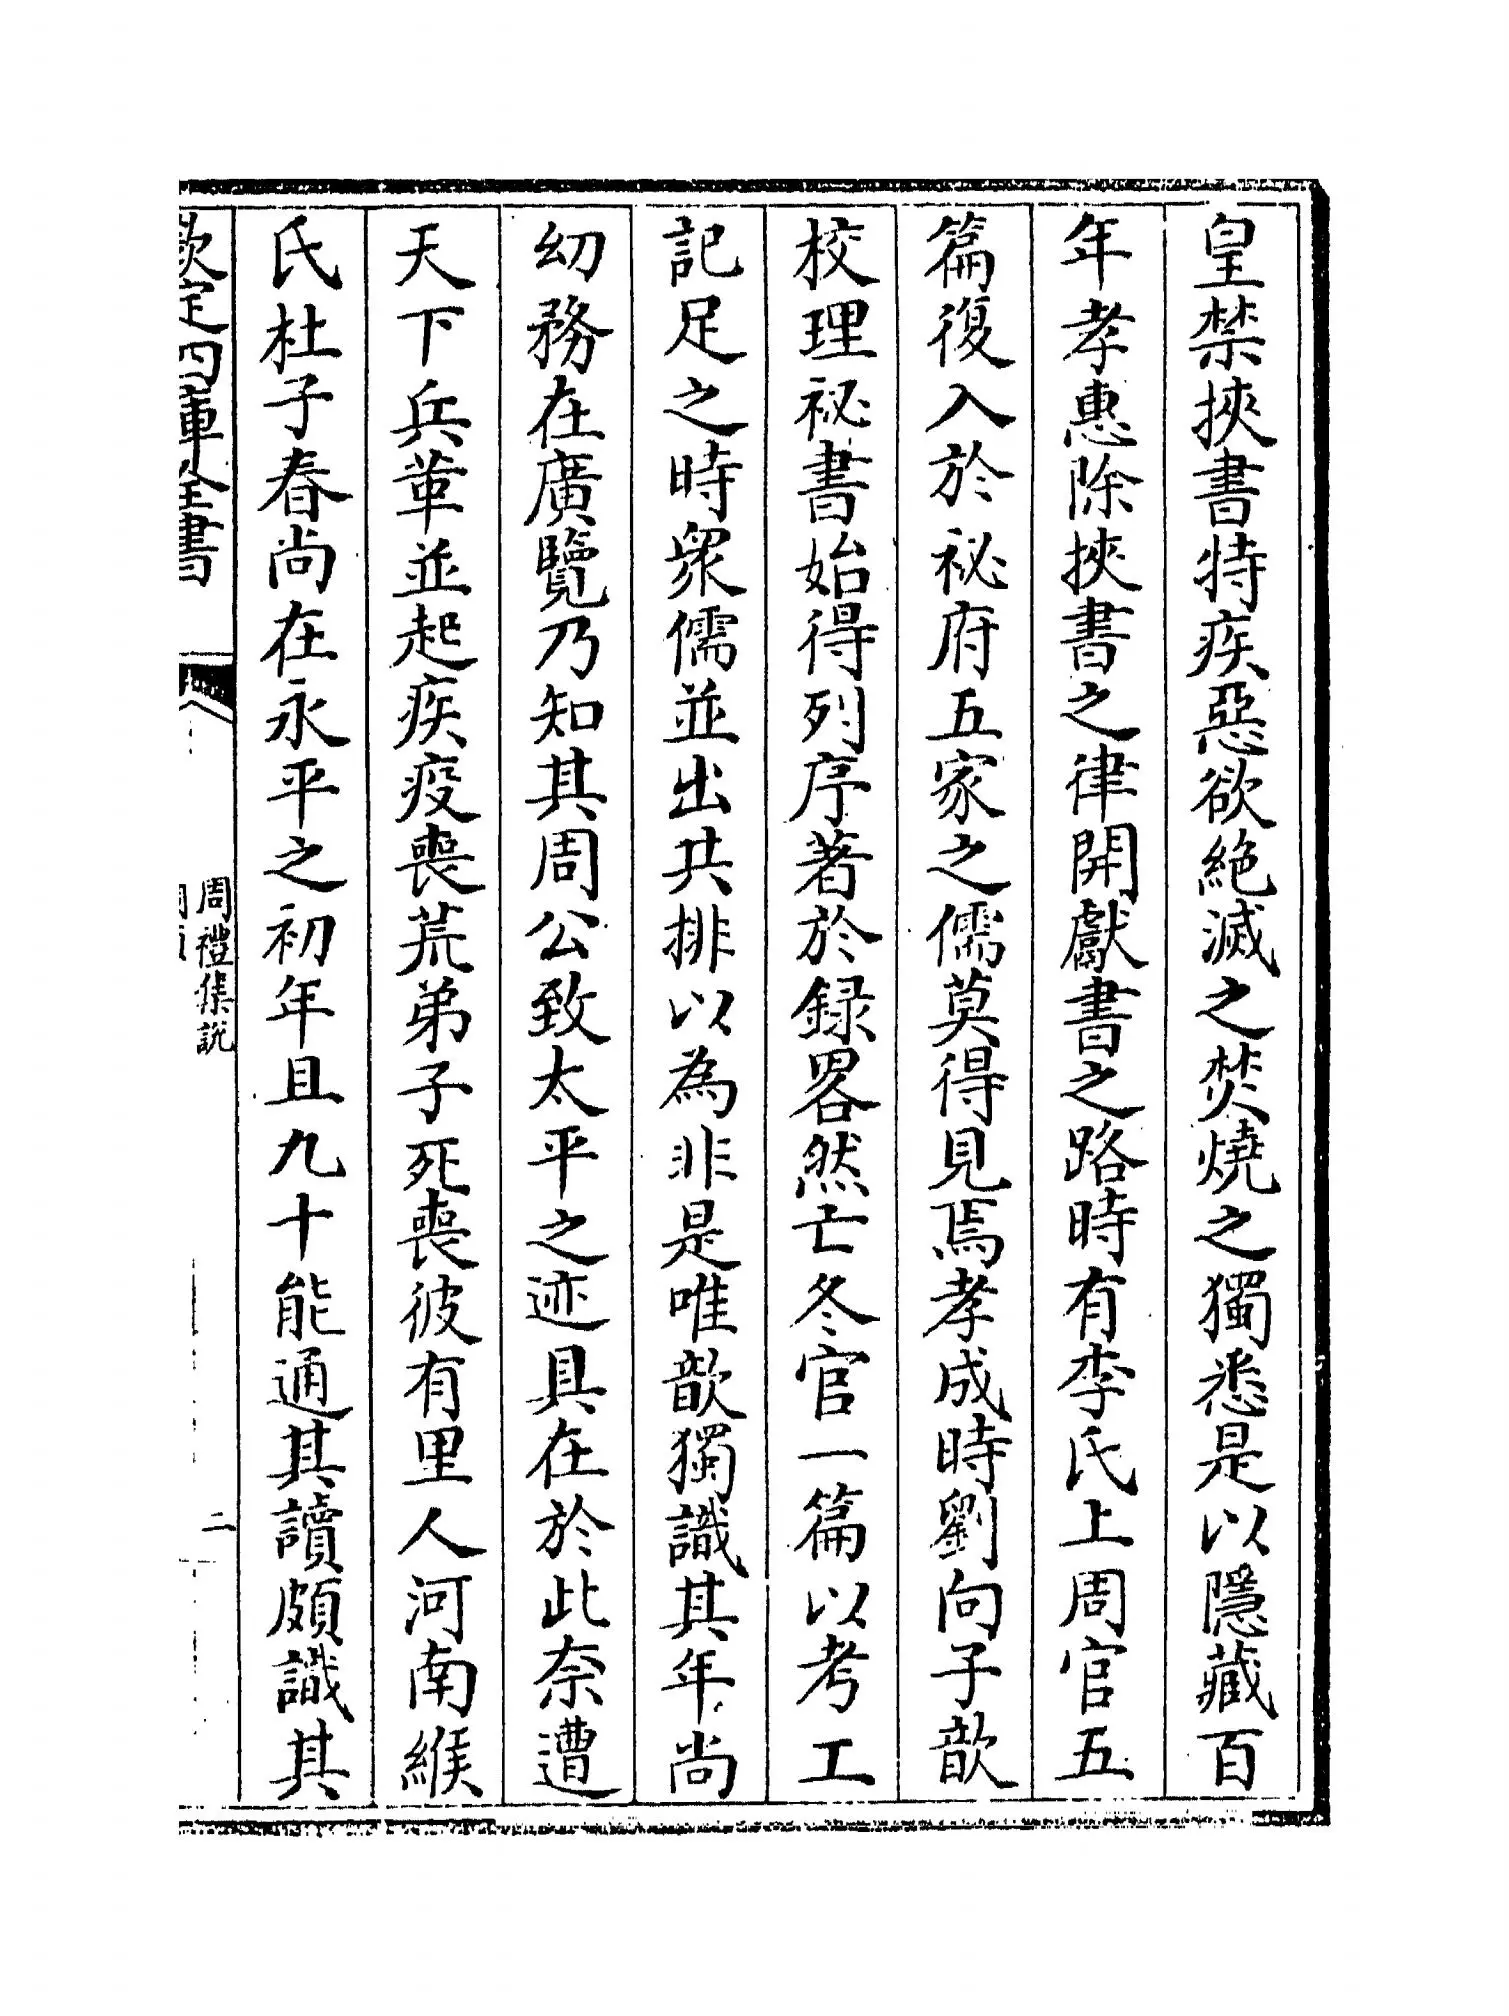 皇禁挾書特疾惡欲絶滅之焚燒之獨悉是以隱藏百
年孝惠除挾書之律開獻書之路時有李氏上周官五
篇復入於祕府五家之儒莫得見焉孝成時劉向子歆
校理祕書始得列序著於録畧然亡冬官一篇以考工
記足之時衆儒並出共排以為非是唯歆獨識其年尚
幼務在廣覽乃知其周公致太平之迹具在於此奈遭
天下兵革並起疾疫喪荒弟子死喪彼有里人河南緱
氏杜子春尚在永平之初年且九十能通其讀頗識其
欽定四庫全書
周禮集說
二